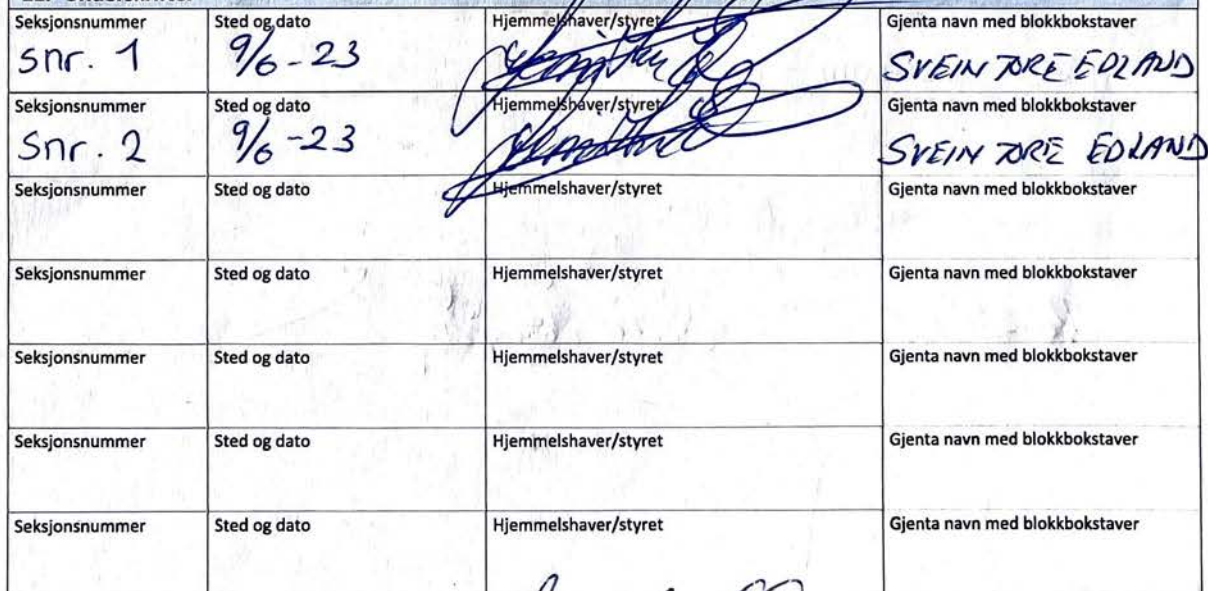 Seksjonsnummer Sted og dato Hjemmelshaver/styret Gjenta navn med blokkbokstaver
snr. 1 9/6-23 SVEIN TORE EDLAND
Seksjonsnummer Sted og dato Hjemmelshaver/styret Gjenta navn med blokkbokstaver
snr. 2 9/6-23 SVEIN TORE EDLAND
Seksjonsnummer Sted og dato Hjemmelshaver/styret Gjenta navn med blokkbokstaver
Seksjonsnummer Sted og dato Hjemmelshaver/styret Gjenta navn med blokkbokstaver
Seksjonsnummer Sted og dato Hjemmelshaver/styret Gjenta navn med blokkbokstaver
Seksjonsnummer Sted og dato Hjemmelshaver/styret Gjenta navn med blokkbokstaver
Seksjonsnummer Sted og dato Hjemmelshaver/styret Gjenta navn med blokkbokstaver